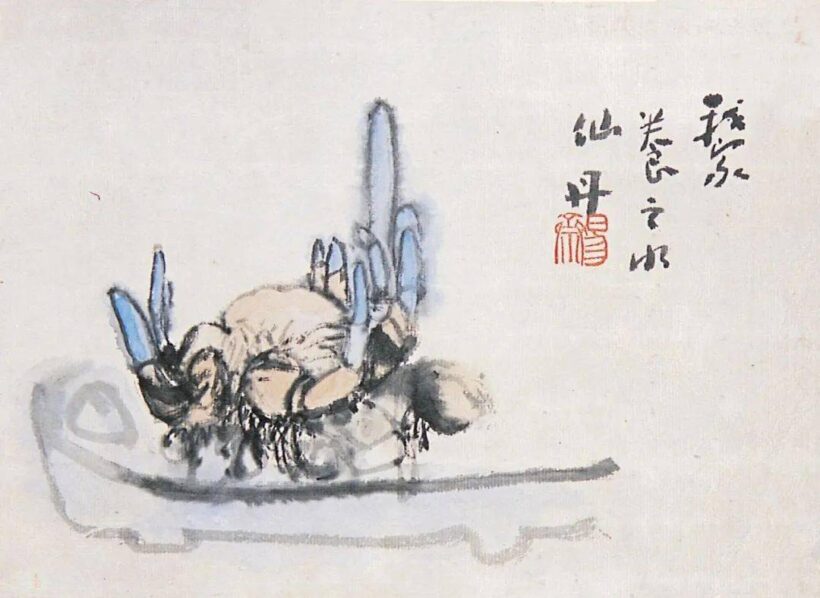 我家
養之水
仙丹